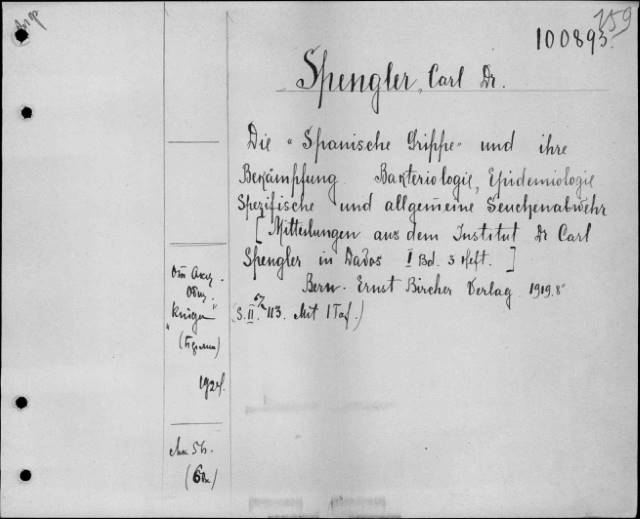 259
100893.
Spengler, Carl Dr.
Die "Spanische Grippe" und ihre
Bekämpfung Bakteriologie, Epidemiologie
Spezifische und allgemeine Seuchenabwehr
[Mitteilungen aus dem Institut Dr Carl
Spengler in Davos I Bd. 3 Heft.]
Bern. Ernst Bircher Verlag 1919. 8°
(S. II. 113. Mit 1 Taf.)
Книга"
(Берлин)
1924.